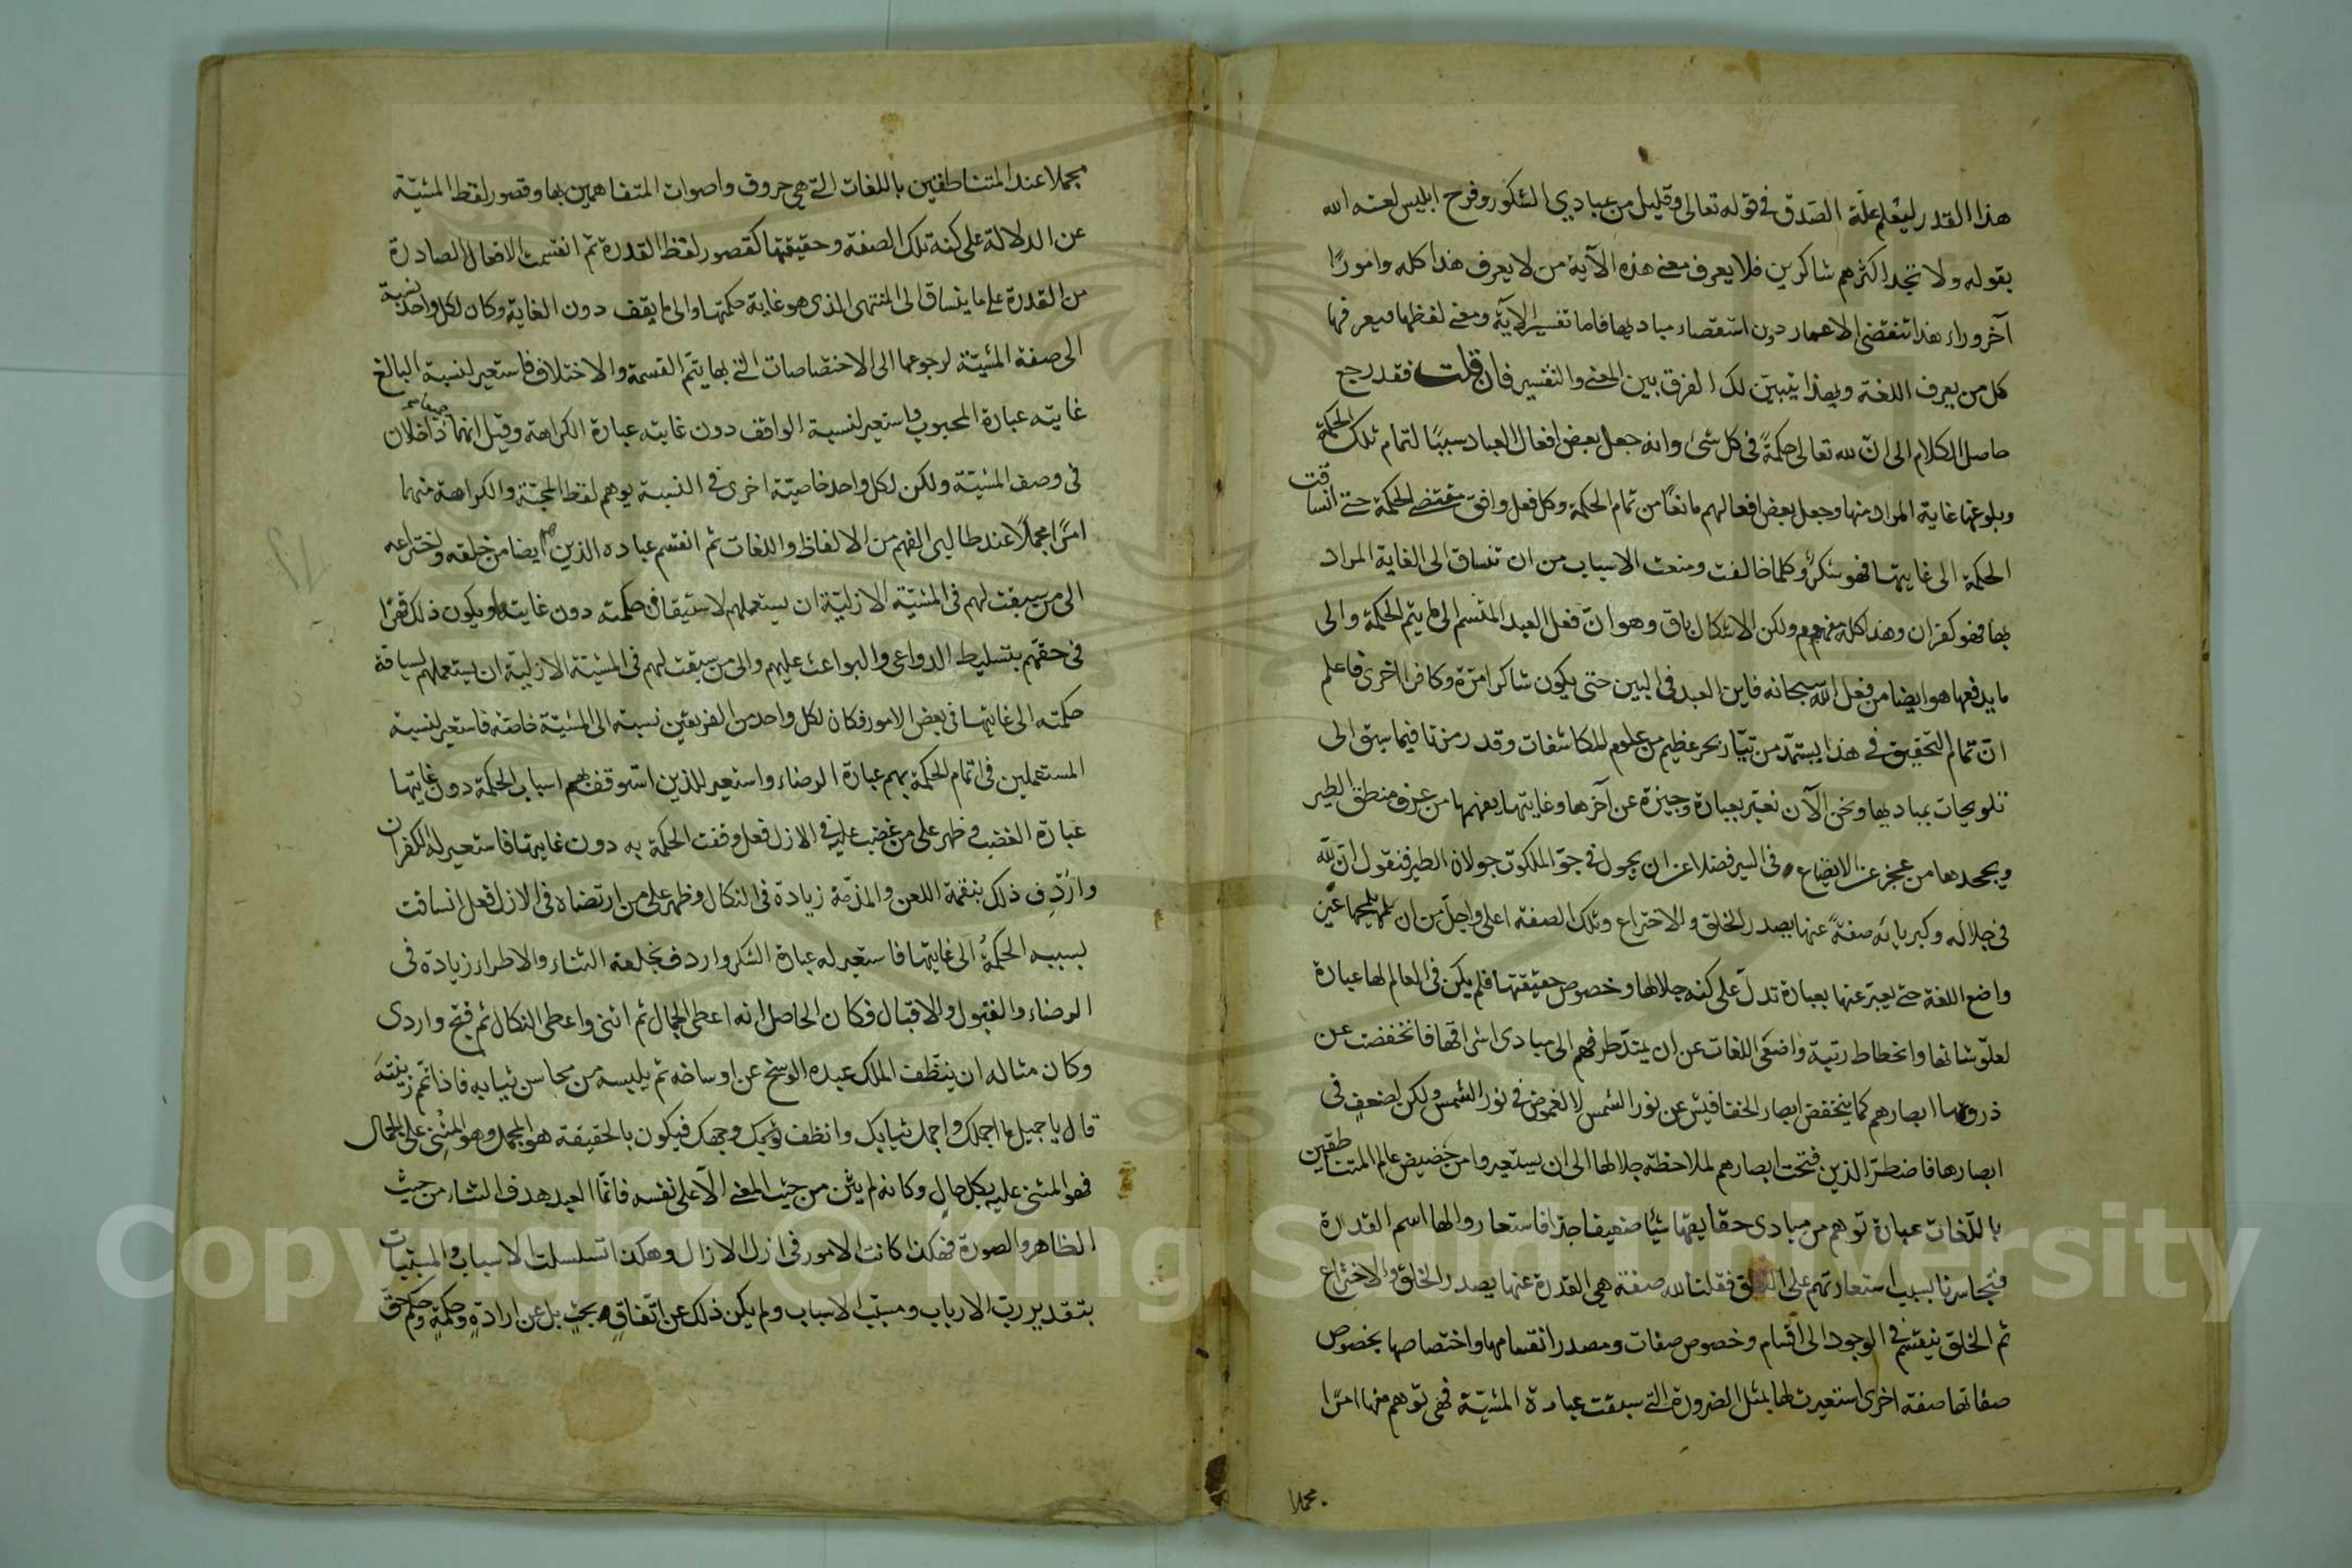 هذا القدر ليعلم علة الصدق في قوله تعالى وقليل من عبادي الشكور وفرح ابليس لعنه الله
بقوله ولا تجد اكثرهم شاكرين فلا يعرف معنى هذه الآية من لا يعرف هذا كله وامورًا
آخر وراء هذا تنقضى الاعمار دون استقصاء مباديها فاما تفسير الآية ومعنى لفظها فيعرفها
كل من يعرف اللغة وبهذا يتبين لك الفرق بين المعنى والتفسير فان قلت فقد رجع
حاصل الكلام الى انّ لله تعالى حكمةً في كل شئ وانه جعل بعض افعال العباد سببًا لتمام تلك الحكمة
وبلوغها غاية المراد منها وجعل بعض افعالهم مانعًا من تمام الحكمة وكل فعل وافق مقتضى الحكمة حتى انساقت
الحكمة الى غايتها فهو شكرٌ وكلما خالفت ومنعت الاسباب من ان تنساق الى الغاية المراد
بها فهو كفران وهذا كله مفهوم ولكن الاشكال باق وهو انّ فعل العبد المنقسم الى ما يتم الحكمة والى
ما يدفعها هو ايضا من فعل الله سبحانه فاين العبد في البين حتى يكون شاكرا مرّة وكافرا اخرى فاعلم
انّ تمام التحقيق في هذا يستمدّ من تيّار بحر عظيم من علوم المكاشفات وقد رمزنا فيما سبق الى
تلويحات بمباديها ونحن الآن نعبّر بعبارة وجيزة عن آخرها وغايتها يفهمها من عرف منطق الطير
ويجحدها من عجز عن الايضاع في السير فضلا عن ان يجول في جوّ الملكوت جولان الطير فنقول انّ لله
في جلاله وكبريائه صفةً عنها يصدر الخلق والاختراع وتلك الصفة اعلى واجلّ من ان تلمحها عين
واضع اللغة حتى يعبّر عنها بعبارة تدلّ على كنه جلالها وخصوص حقيقتها فلم يكن في العالم لها عبارة
لعلوّ شانها وانحطاط رتبة واضعى اللغات عن ان يمتدّ طرفهم الى مبادى اشراقها فانخفضت عن
ذروتها ابصارهم كما ينخفض ابصار الخفافيش عن نور الشمس لا لغموض في نور الشمس ولكن لضعف في
ابصارها فاضطرّ الذين فتحت ابصارهم لملاحظة جلالها الى ان يستعيروا من حضيض عالم المتناطقين
باللّغات عبارة توهم من مبادى حقايقها شيئا ضعيفا جدّا فاستعاروا لها اسم القدرة
فتجاسرنا بسبب استعارتهم على النطق فقلنا لله صفة هي القدرة عنها يصدر الخلق والاختراع
ثم الخلق ينقسم في الوجود الى اقسام وخصوص صفات ومصدر انقسامها واختصاصها بخصوص
صفاتها صفة اخرى استعيرت لها بمثل الضرورة التي سبقت عبارة المشيّة فهى توهم منها امرًا
مجملا
مجملا عند المتناطقين باللغات التي هي حروف واصوات المتفاهمين بها وقصور لفظ المشيّة
عن الدلالة على كنه تلك الصفة وحقيقتها كقصور لفظ القدرة ثم انقسمت الافعال الصادرة
من القدرة على ما ينساق الى المنتهى الذى هو غاية حكمتها والى ما يقف دون الغاية وكان لكل واحد نسبة
الى صفة المشيّة لرجوعها الى الاختصاصات التي بها يتم القسمة والاختلاف فاستعير لنسبة البالغ
غايته عبارة المحبوب واستعير لنسبة الواقف دون غايته عبارة الكراهة وقيل انهما جميعا داخلان
في وصف المشيّة ولكن لكل واحد خاصيّة اخرى في النسبة يوهم لفظ المحبّة والكراهة منهما
امرًا مجملًا عند طالبى الفهم من الالفاظ واللغات ثم انقسم عباده الذين هم ايضا من خلقه واختراعه
الى من سبقت لهم في المشيّة الازليّة ان يستعملهم لاستيقاف حكمته دون غايتها ويكون ذلك قهرًا
في حقّهم بتسليط الدواعى والبواعث عليهم والى من سبقت لهم في المشيّة الازليّة ان يستعملهم لسياقة
حكمته الى غايتها في بعض الامور فكان لكل واحد من الفريقين نسبة الى المشيّة خاصّة فاستعير لنسبة
المستعملين في اتمام الحكمة بهم عبارة الرضاء واستعير للذين استوقف بهم اسباب الحكمة دون غايتها
عبارة الغضب فظهر على من غضب عليه في الازل فعل وقفت الحكمة به دون غايتها فاستعير له الكفران
واُرْدِف ذلك بنقمة اللعن والمذمّة زيادة في النكال وظهر على من ارتضاه في الازل فعل انساقت
بسببه الحكمةُ الى غايتها فاستعير له عبارة الشكر واردف بخلعة الثناء والاطراء زيادة في
الرضاء والقبول والاقبال فكان الحاصل انه اعطى الجمال ثم اثنى واعطى النكال ثم قبّح واردى
وكان مثاله ان ينظّف الملك عبده الوسخ عن اوساخه ثم يلبسه من محاسن ثيابه فاذا تمّم زينته
قال يا جميل ما اجملك واجمل ثيابك وانظف وجهك فيكون بالحقيقة هو المجمل وهو المثنى على الجمال
فهو المثنى عليه بكل حال وكانه لم يثن من حيث المعنى الّا على نفسه فانّما العبد هدف الثناء من حيث
الظاهر والصورة فهكذا كانت الامور في ازل الازال وهكذا تسلسلت الاسباب والمسبّبات
بتقدير ربّ الارباب ومسبّب الاسباب ولم يكن ذلك عن اتّفاقٍ وبحثٍ بل عن ارادةٍ وحكمةٍ وحكم حقّ
Copyright © King Saud University
1957